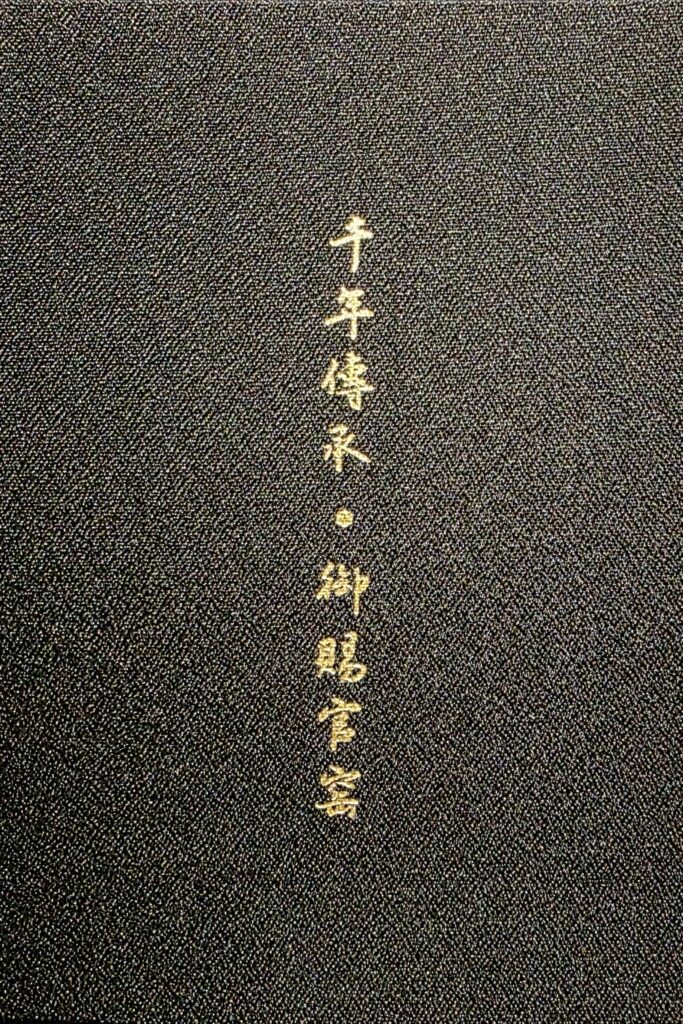 千年傳承•御賜官窑